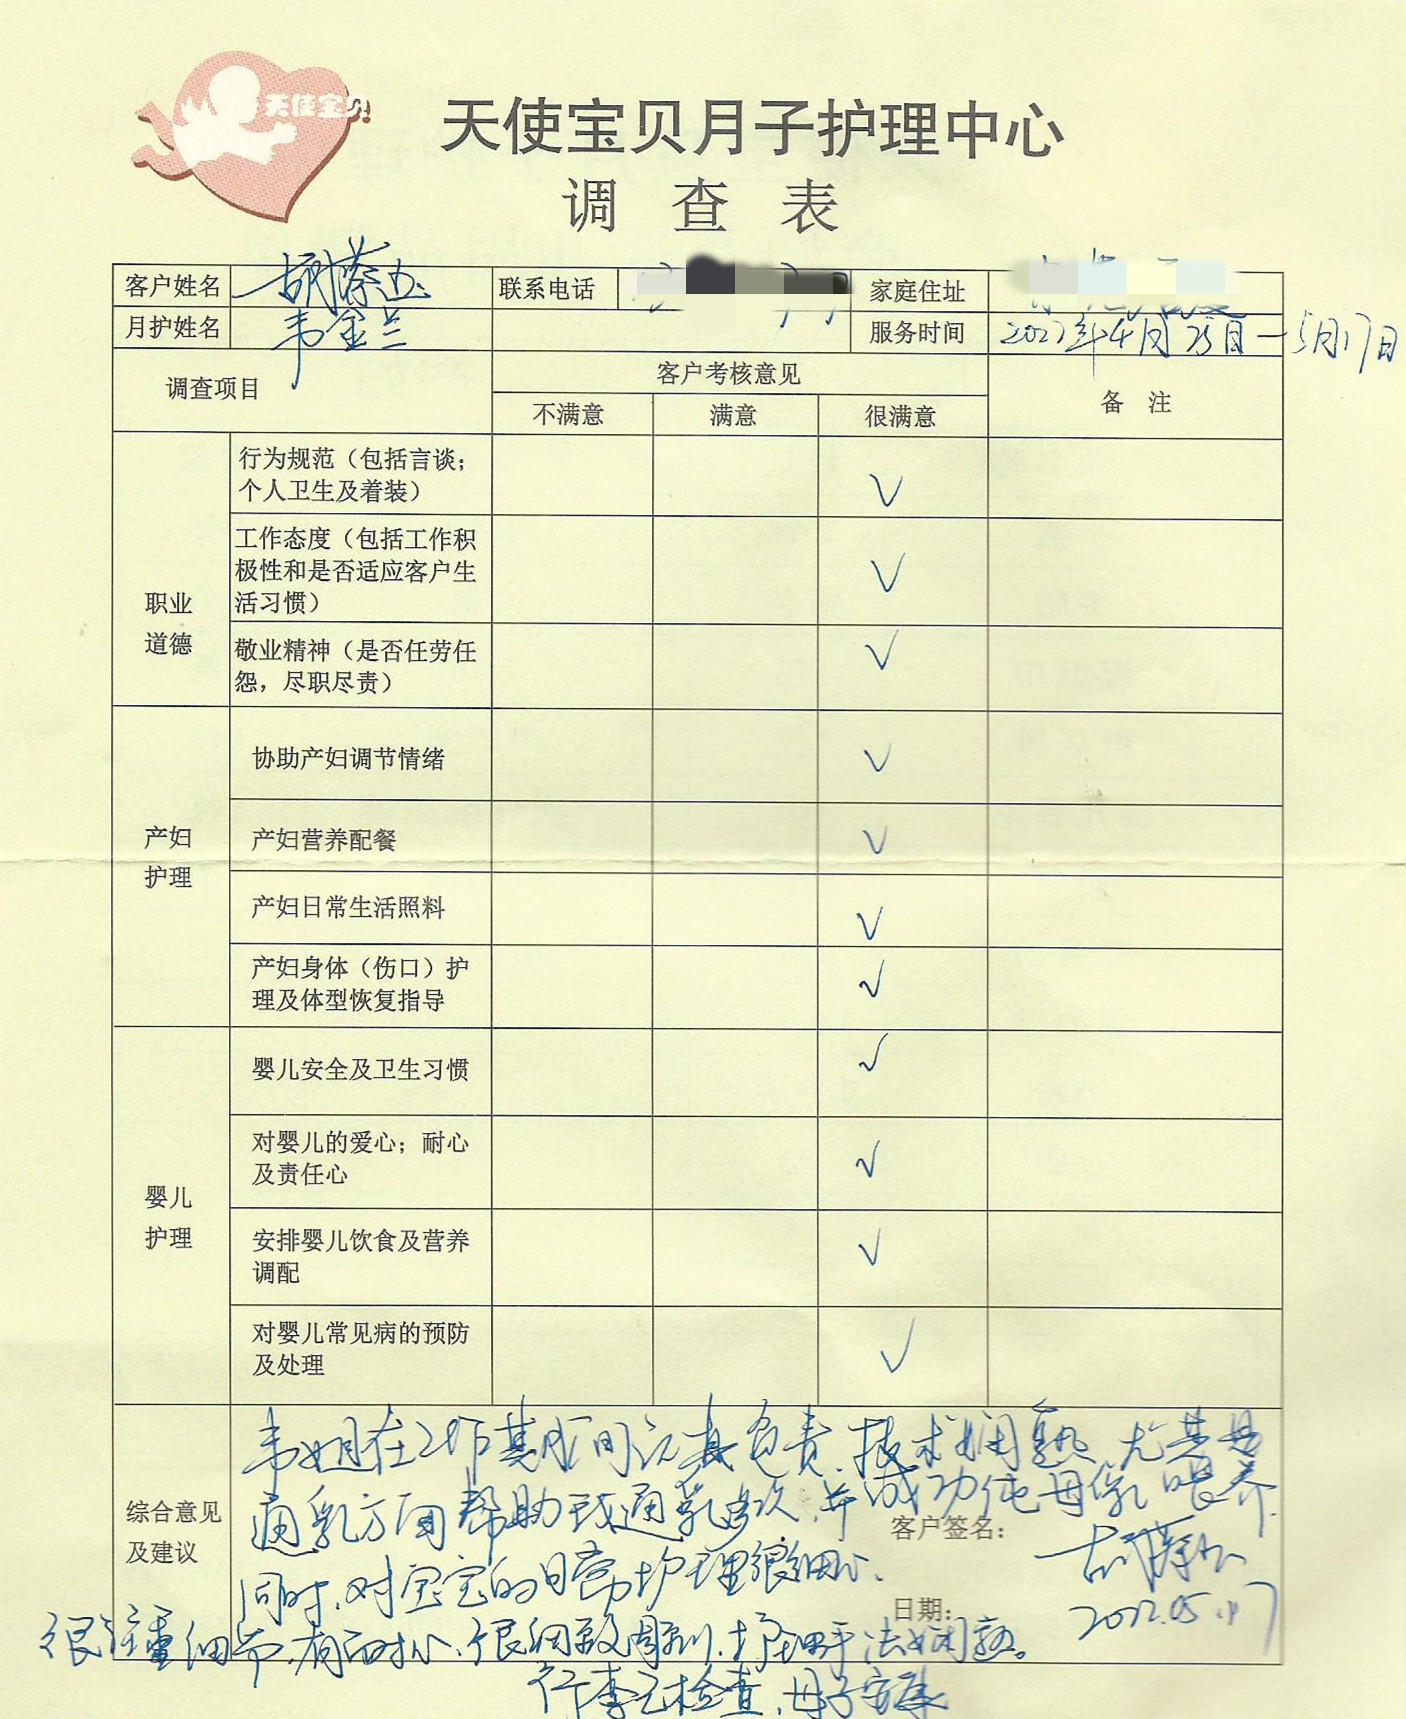 天使宝贝
天使宝贝月子护理中心
调 查 表
客户姓名 联系电话 家庭住址
月护姓名 韦金兰 服务时间 2022年4月25日－5月17日
调查项目 客户考核意见 备 注
不满意 满意 很满意
职业
道德
行为规范（包括言谈；
个人卫生及着装） √
工作态度（包括工作积
极性和是否适应客户生
活习惯） √
敬业精神（是否任劳任
怨，尽职尽责） √
产妇
护理
协助产妇调节情绪 √
产妇营养配餐 √
产妇日常生活照料 √
产妇身体（伤口）护
理及体型恢复指导 √
婴儿
护理
婴儿安全及卫生习惯 √
对婴儿的爱心；耐心
及责任心 √
安排婴儿饮食及营养
调配 √
对婴儿常见病的预防
及处理 √
综合意见
及建议
韦姐在工作期间认真负责，技术娴熟，尤其是
通乳方面帮助我通乳多次，并成功纯母乳喂养，
客户签名：
同时，对宝宝的日常护理很细心、
日期： 2022.05.17
很注重细节，很细致周到，护理手法娴熟。
行李已检查，母子安康